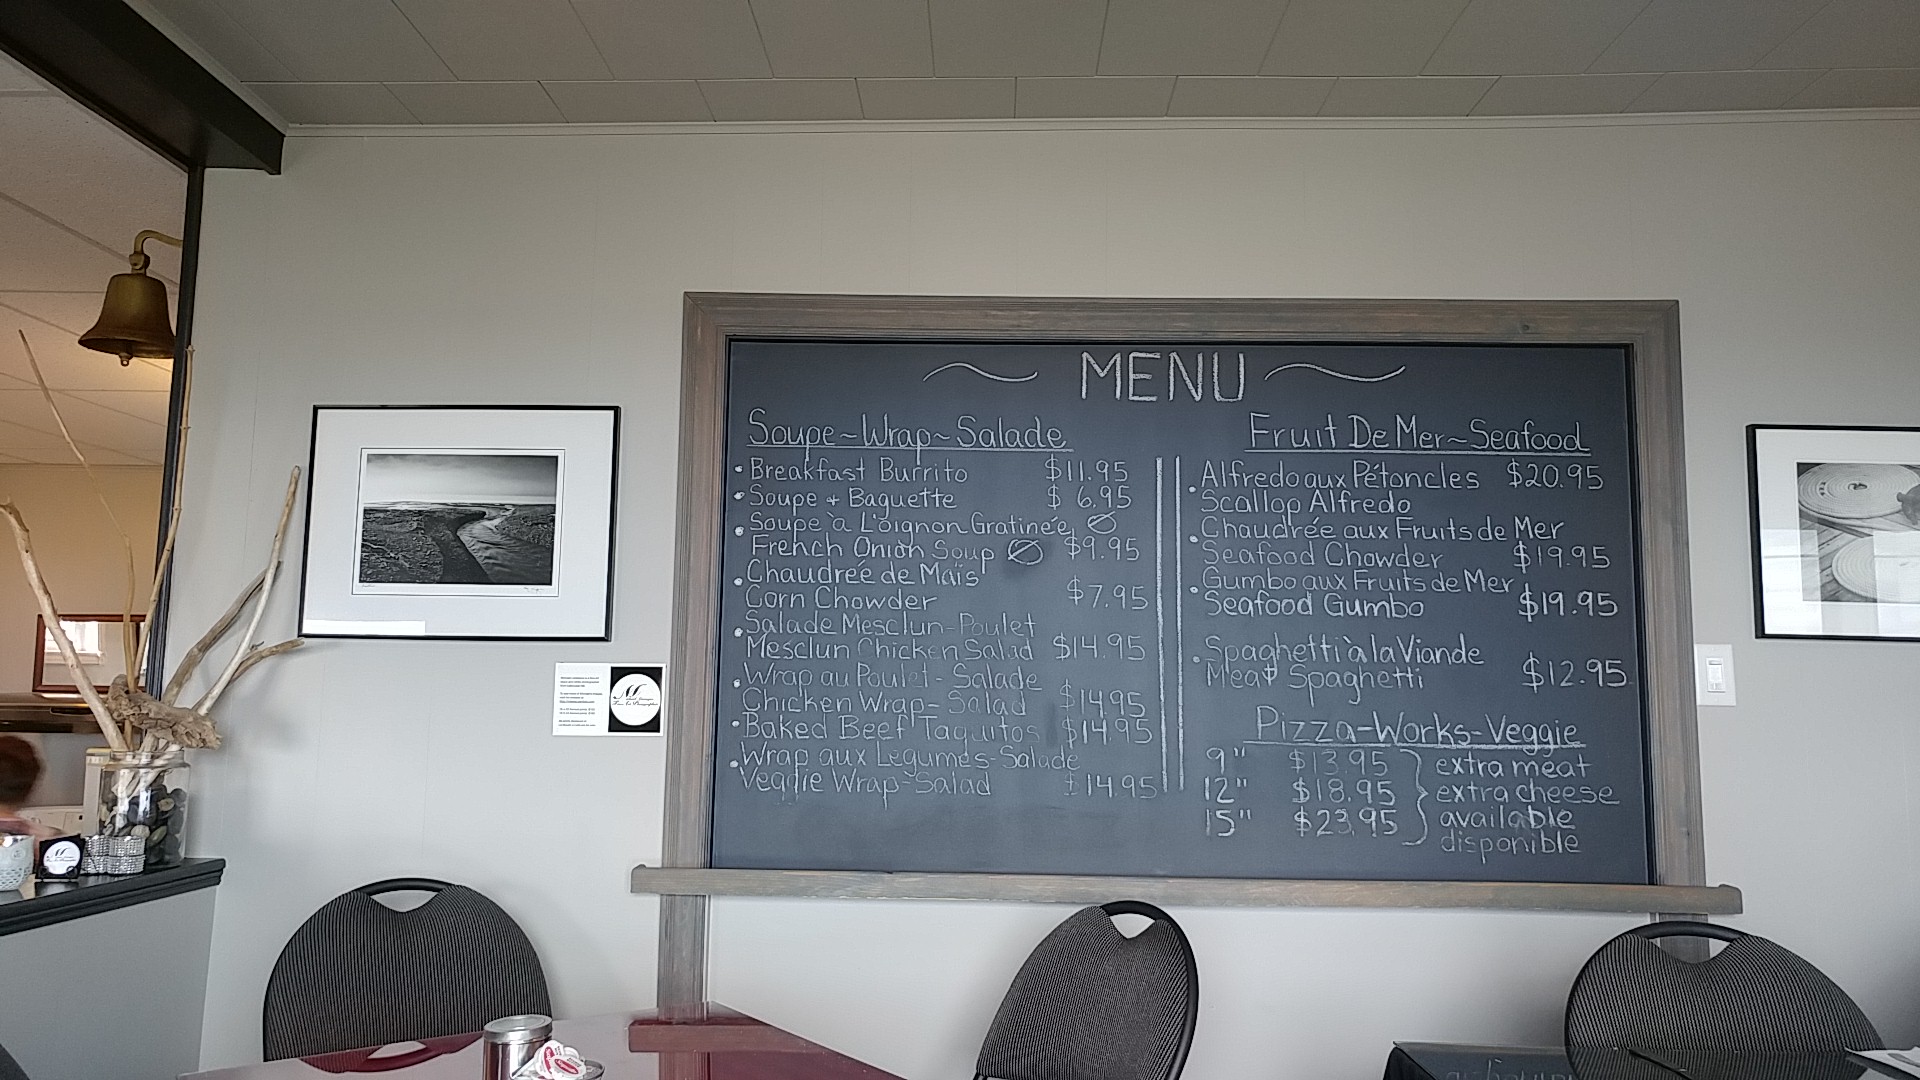 MENU
Soupe~Wrap~Salade
• Breakfast Burrito $11.95
• Soupe + Baguette $6.95
• Soupe à L'oignon Gratineé
French Onion Soup $9.95
• Chaudrée de Maïs
Corn Chowder $7.95
• Salade Mesclun-Poulet
Mesclun Chicken Salad $14.95
• Wrap au Poulet - Salade
Chicken Wrap - Salad $14.95
• Baked Beef Taquitos $14.95
• Wrap aux Légumes-Salade
Veggie Wrap-Salad $14.95
Fruit De Mer~Seafood
• Alfredo aux Pétoncles $20.95
Scallop Alfredo
• Chaudrée aux Fruits de Mer
Seafood Chowder $19.95
• Gumbo aux Fruits de Mer
Seafood Gumbo $19.95
• Spaghetti à la Viande
Meat Spaghetti $12.95
Pizza-Works-Veggie
9" $13.95
12" $18.95
15" $23.95
extra meat
extra cheese
available
disponible